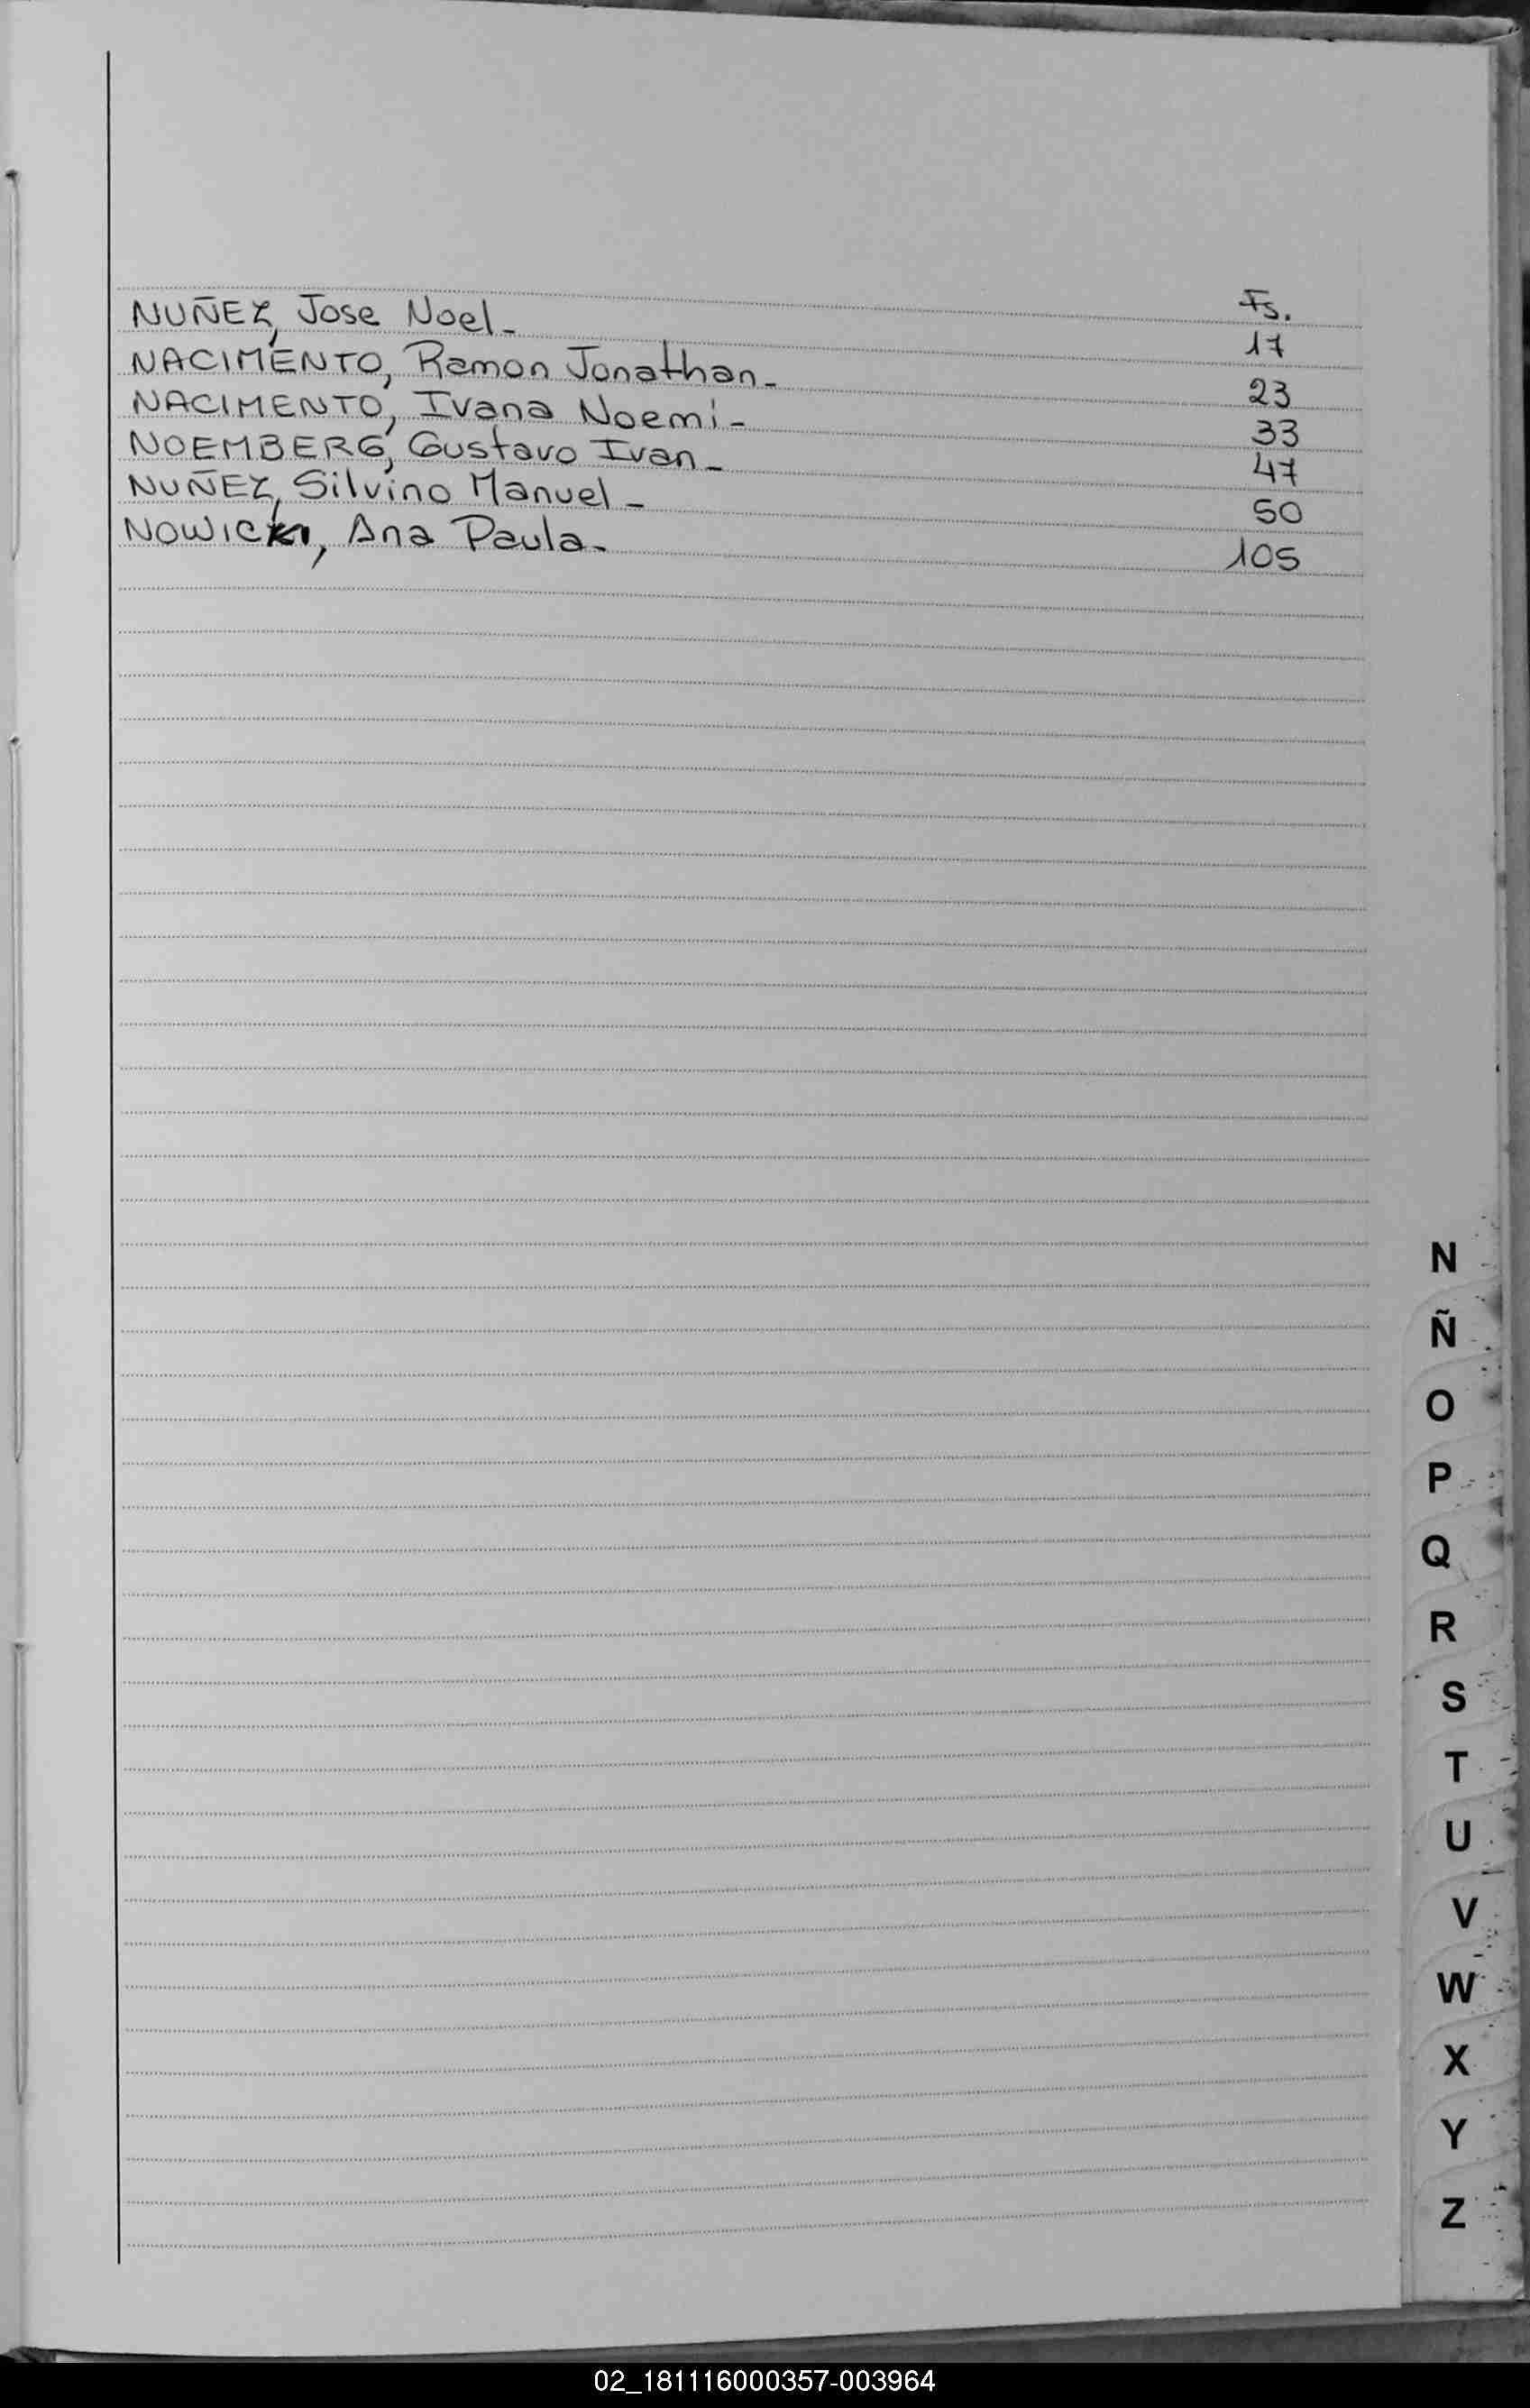 Fs.
NUÑEZ, Jose Noel- 17
NACIMENTO, Ramon Jonathan- 23
NACIMENTO, Ivana Noemi- 33
NOEMBERG, Gustavo Ivan- 47
NUÑEZ, Silvino Manuel- 50
NOWICKI, Ana Paula- 105
N
Ñ
O
P
Q
R
S
T
U
V
W
X
Y
Z
02_181116000357-003964